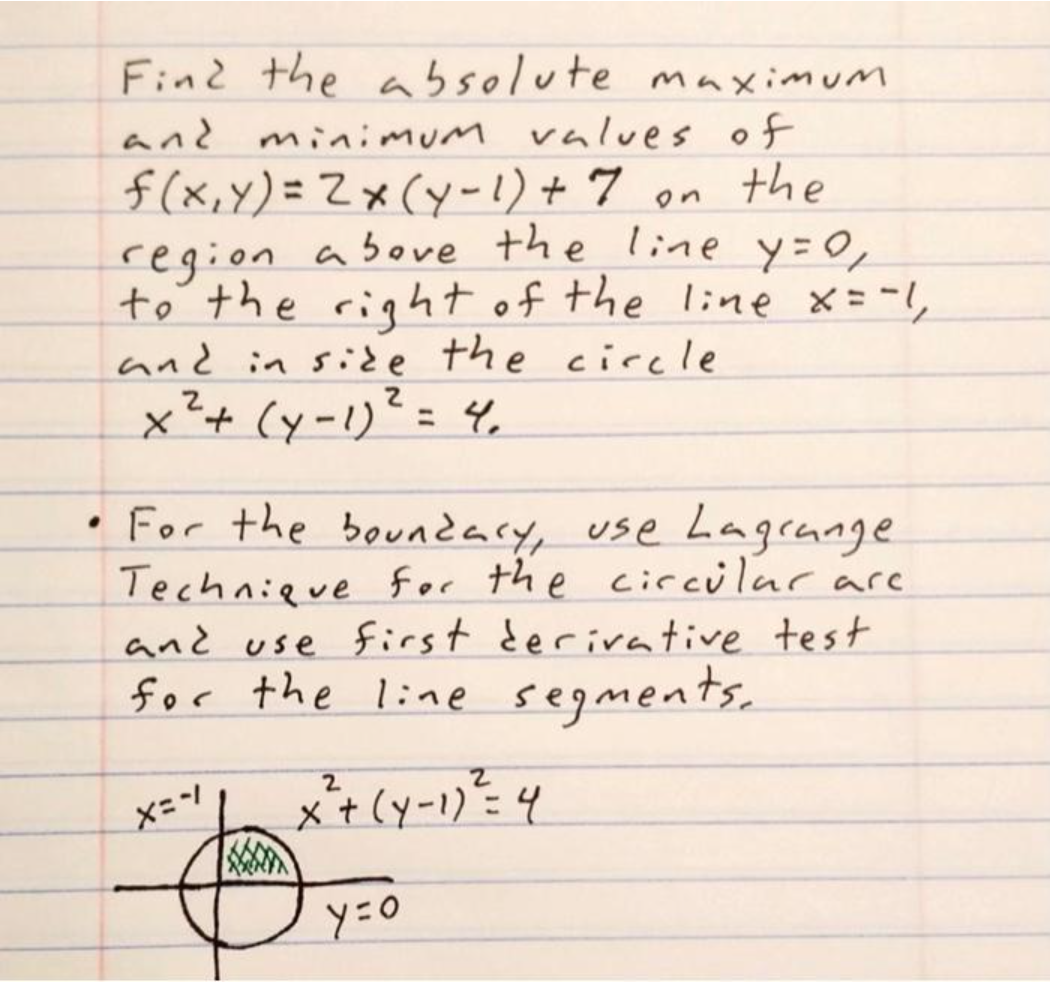 Find the absolute maximum
and minimum values of
f(x,y)=2x(y-1)+7 on the
region above the line y=0,
to the right of the line x=-1,
and inside the circle
x²+(y-1)²=4.
• For the boundary, use Lagrange
Technique for the circular arc
and use first derivative test
for the line segments.
x=-1 x²+(y-1)²=4
y=0